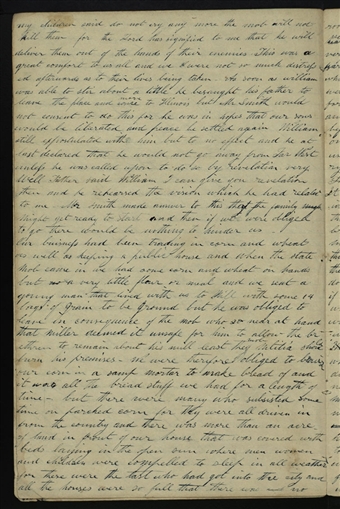 my children said do not cry any more the mob will not
kill them for the Lord has signified to me that he will
deliver them out of the hands of their enemies This was a
great comfort to us all and we were not so much distress
ed afterwards as to their lives being taken As soon as William
was able to stir about a little he besought his father to
leave the place and move to Illinois but Mr Smith would
not consent to do this for he was in hopes that our sons
would be liberated and peace be settled again William
still expostulated with him but to no effect and he at
last declared that he would not go away from Far West
unless he was called upon to do so by revelation very
well father said William I can give you revelation
then and he rehearsed the vision which he had related
to me Mr Smith made answer to this that the family
might get ready to start and then if we were obliged
to go there would be nothing to hinder us
Our business had been trading in corn and wheat
as well as keeping a public house and when the state
Mob came in we had some corn and wheat on hands
but a very little flour or meal and we sent a
young man that lived with us to mill with some 19
bags of grain to be ground but he was obliged to
in consequence of the mob who so near at hand
that Miller deemed it unsafe for him to the
to remain about his mill lest they Militia should
his premises we were therefore obliged to
our corn in a samp mortar to make bread of and
it was all the bread stuff we had for a length of
time but there were many who subsisted some
time on parched corn for they were all driven in
from the country and there was more than an acre
of land in front of our house that was covered with
beds laying in the open sun where men women
and children were compelled to sleep in all weather
for these were the last who had got into the city and
all the houses were so full that there was no